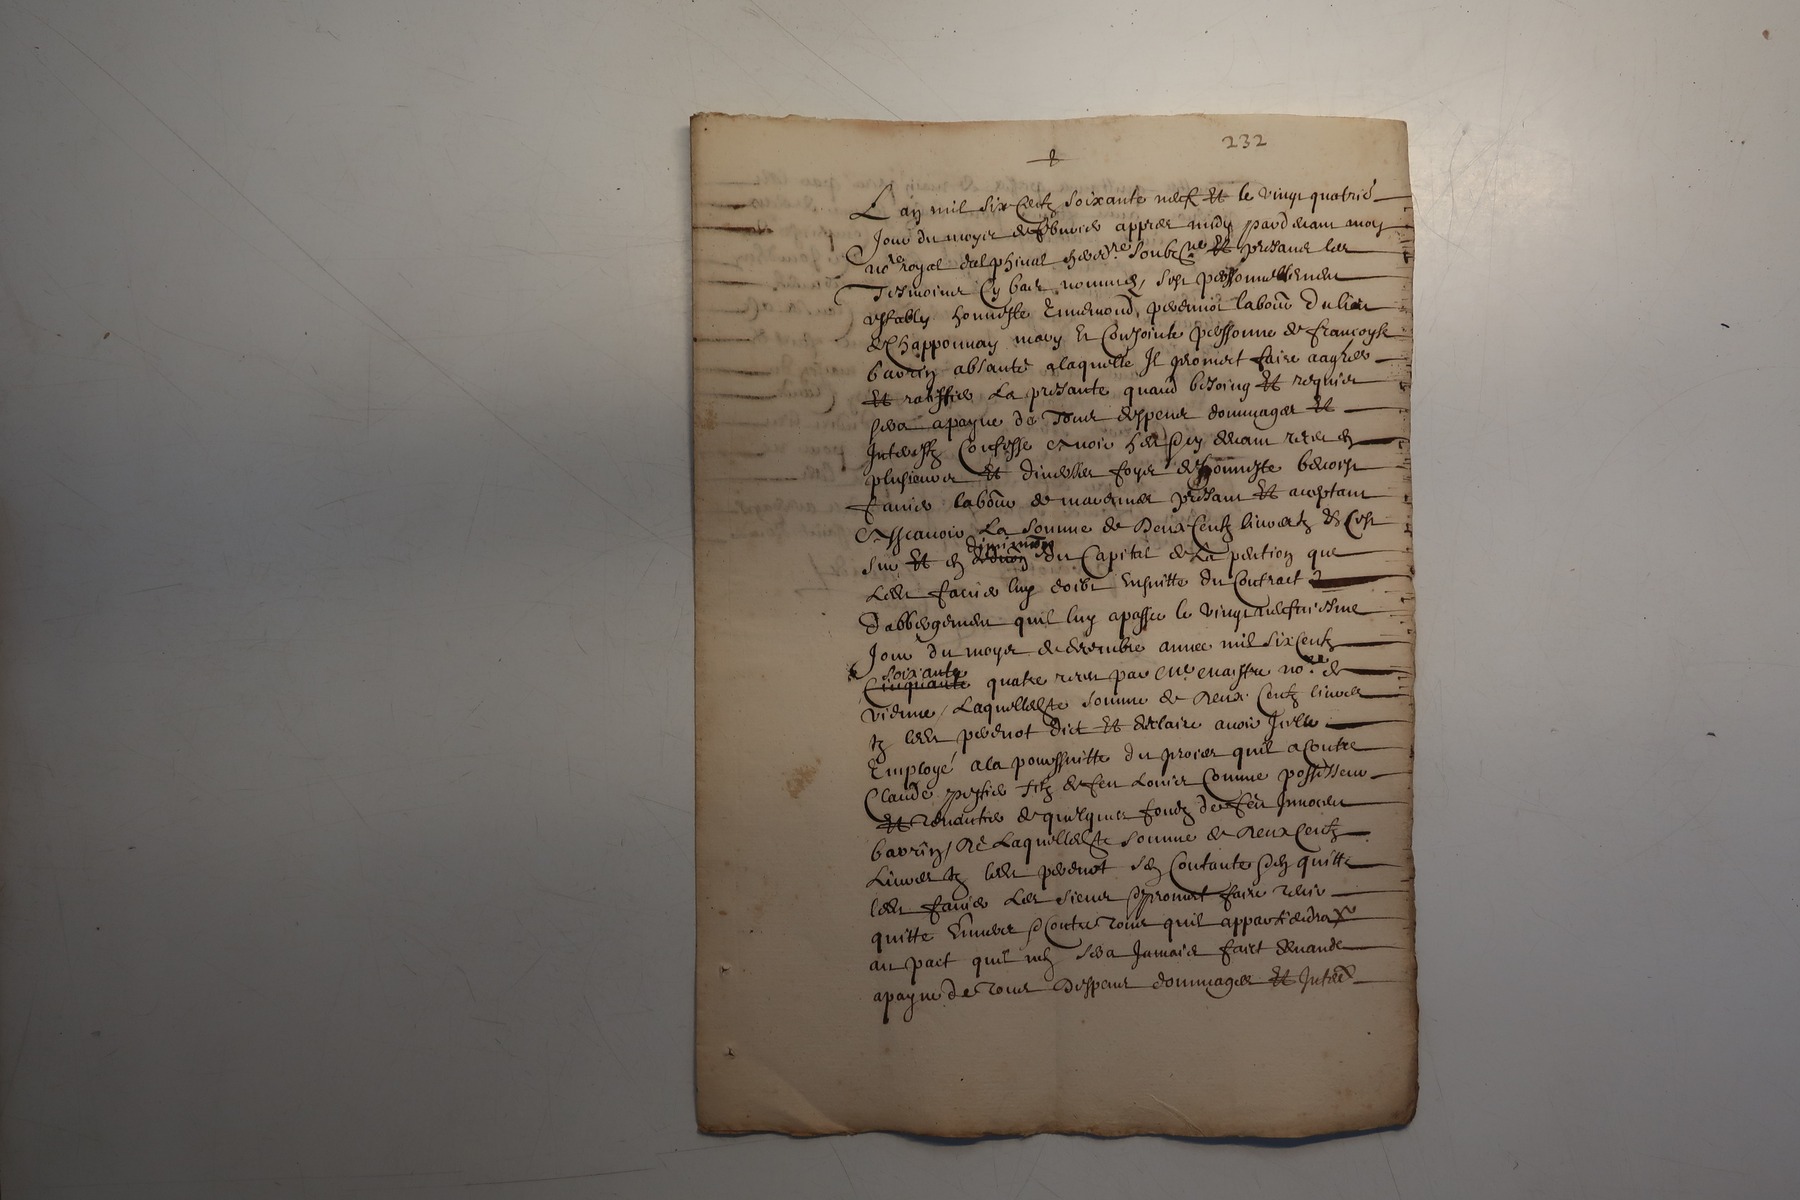 232
L an mil six Centz soixante neuf Et le vingt quatrie
Jour du moys de febvrier appres midy pardevant moy
no.re royal dalphinal hered.re soubz.ne Et presance des
Tesmoins Cy bas nommes, s'est personnellement
estably honneste Ennemond pervenot labour du lieu
de Chapponnay mary Et Conjointe personne de francoyse
baurin absante a laquelle Il promet faire aagreer
Et rattiffier La presante quand besoing Et requis
sera a payne de Tous despens dommages Et
Interestz Confesse avoir heu Cy devant receu en
plusieurs Et diverses foys de honneste benoist
favier labour de marennes presant Et aceptant
Assavoir La somme de Deux Centz livres tz Et C'est
sur Et en diminuon du Capital de La pention que
Led. favier luy doibt Ensuitte du Contract
d'abbergement quil luy a passee le vingt neufviesme
Jour du moys de decembre annee mil six Centz
soixante
Cinquante quatre receu par me no.re de
vienne, Laquelle somme de deux Centz livres
tz led. pervenot dict Et desclaire avoir Icelle
Employé a la poursuitte du proces quil a Contre
Claude filz de feu Louis Comme possesseur
Et Tenantier de quelques fondz de feu Innocent
baurin, De Laquelle somme de deux Centz
Livres tz led. pervenot s'en Contante Et en quitte
led. favier Les siens Et promet faire tenir
quitte Envers Et Contre Tous quil appartiendra
au pact quil n'en sera Jamais faict demande
a payne de Tous despens dommages Et Interestz